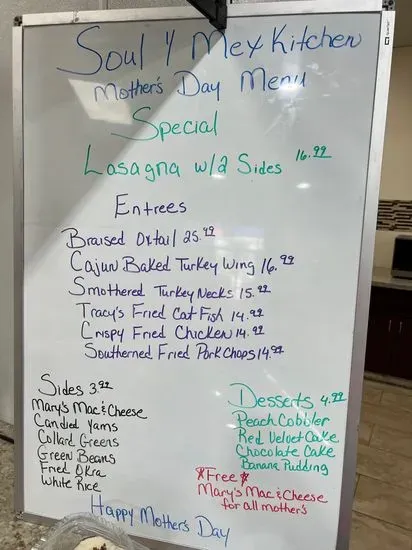 Soul y Mex Kitchen
Mother's Day Menu
Special
Lasagna w/2 Sides 16.99
Entrees
Braised Oxtail 25.99
Cajun Baked Turkey Wing 16.99
Smothered Turkey Necks 15.99
Tracy's Fried Cat Fish 14.99
Crispy Fried Chicken 14.99
Southerned Fried Pork Chops 14.99
Sides 3.99
Mary's Mac & Cheese
Candied Yams
Collard Greens
Green Beans
Fried Okra
White Rice
Desserts 4.99
Peach Cobbler
Red Velvet Cake
Chocolate Cake
Banana Pudding
*Free*
Mary's Mac & Cheese
for all mother's
Happy Mother's Day